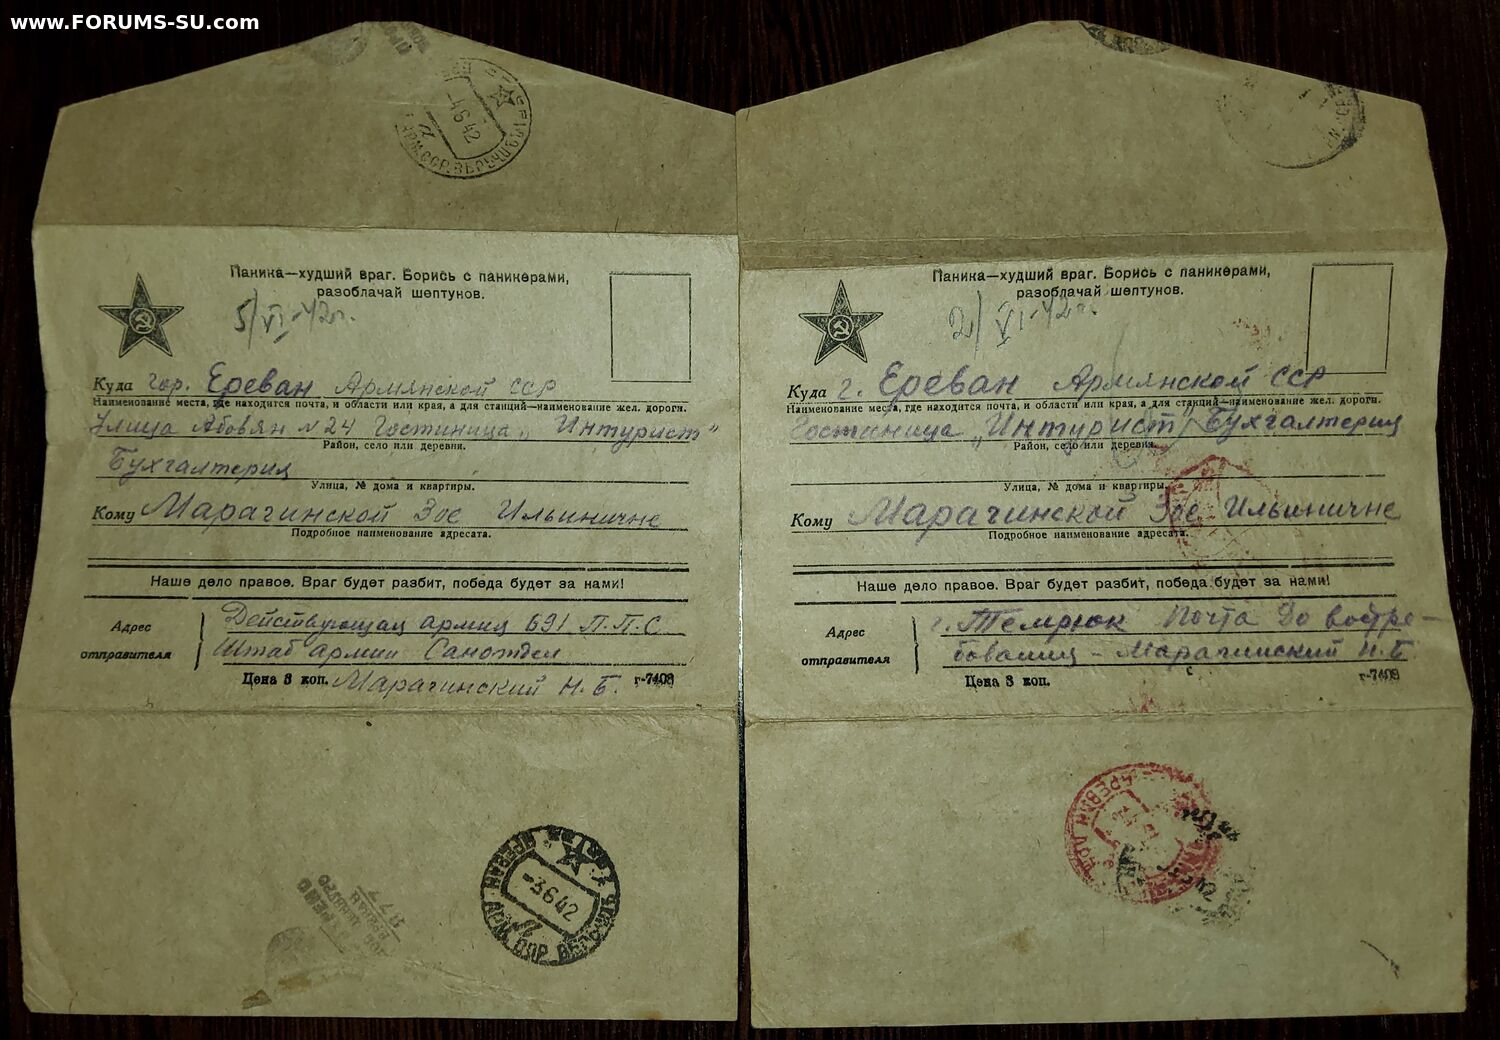 www.FORUMS-SU.com
АРМ.ССР.
-4642
Паника—худший враг. Борись с паникерами,
разоблачай шептунов.
5/VI-42г.
Куда гор. Ереван Армянской ССР
Наименование места, где находится почта, и области или края, а для станций—наименование жел. дороги.
Улица Абовян №24 Гостиница „Интурист"
Район, село или деревня.
Бухгалтерия
Улица, № дома и квартиры.
Кому Марагинской Зое Ильиничне
Подробное наименование адресата.
Наше дело правое. Враг будет разбит, победа будет за нами!
Адрес
отправителя
Действующая армия 691 П.П.С.
Штаб армии Санотдел
Цена 3 коп. Марагинский Н.Б. г-7408
ЕРЕВАН
-3642
АРМ ССР
Паника—худший враг. Борись с паникерами,
разоблачай шептунов.
2/VI-42г.
Куда г. Ереван Армянской ССР
Наименование места, где находится почта, и области или края, а для станций—наименование жел. дороги.
Гостиница „Интурист" Бухгалтерия
Район, село или деревня.
Улица, № дома и квартиры.
Кому Марагинской Зое Ильиничне
Подробное наименование адресата.
Наше дело правое. Враг будет разбит, победа будет за нами!
Адрес
отправителя
г. Темрюк Почта До востре-
бования - Марагинский Н.Б.
Цена 3 коп. г-7408
ЕРЕВАН